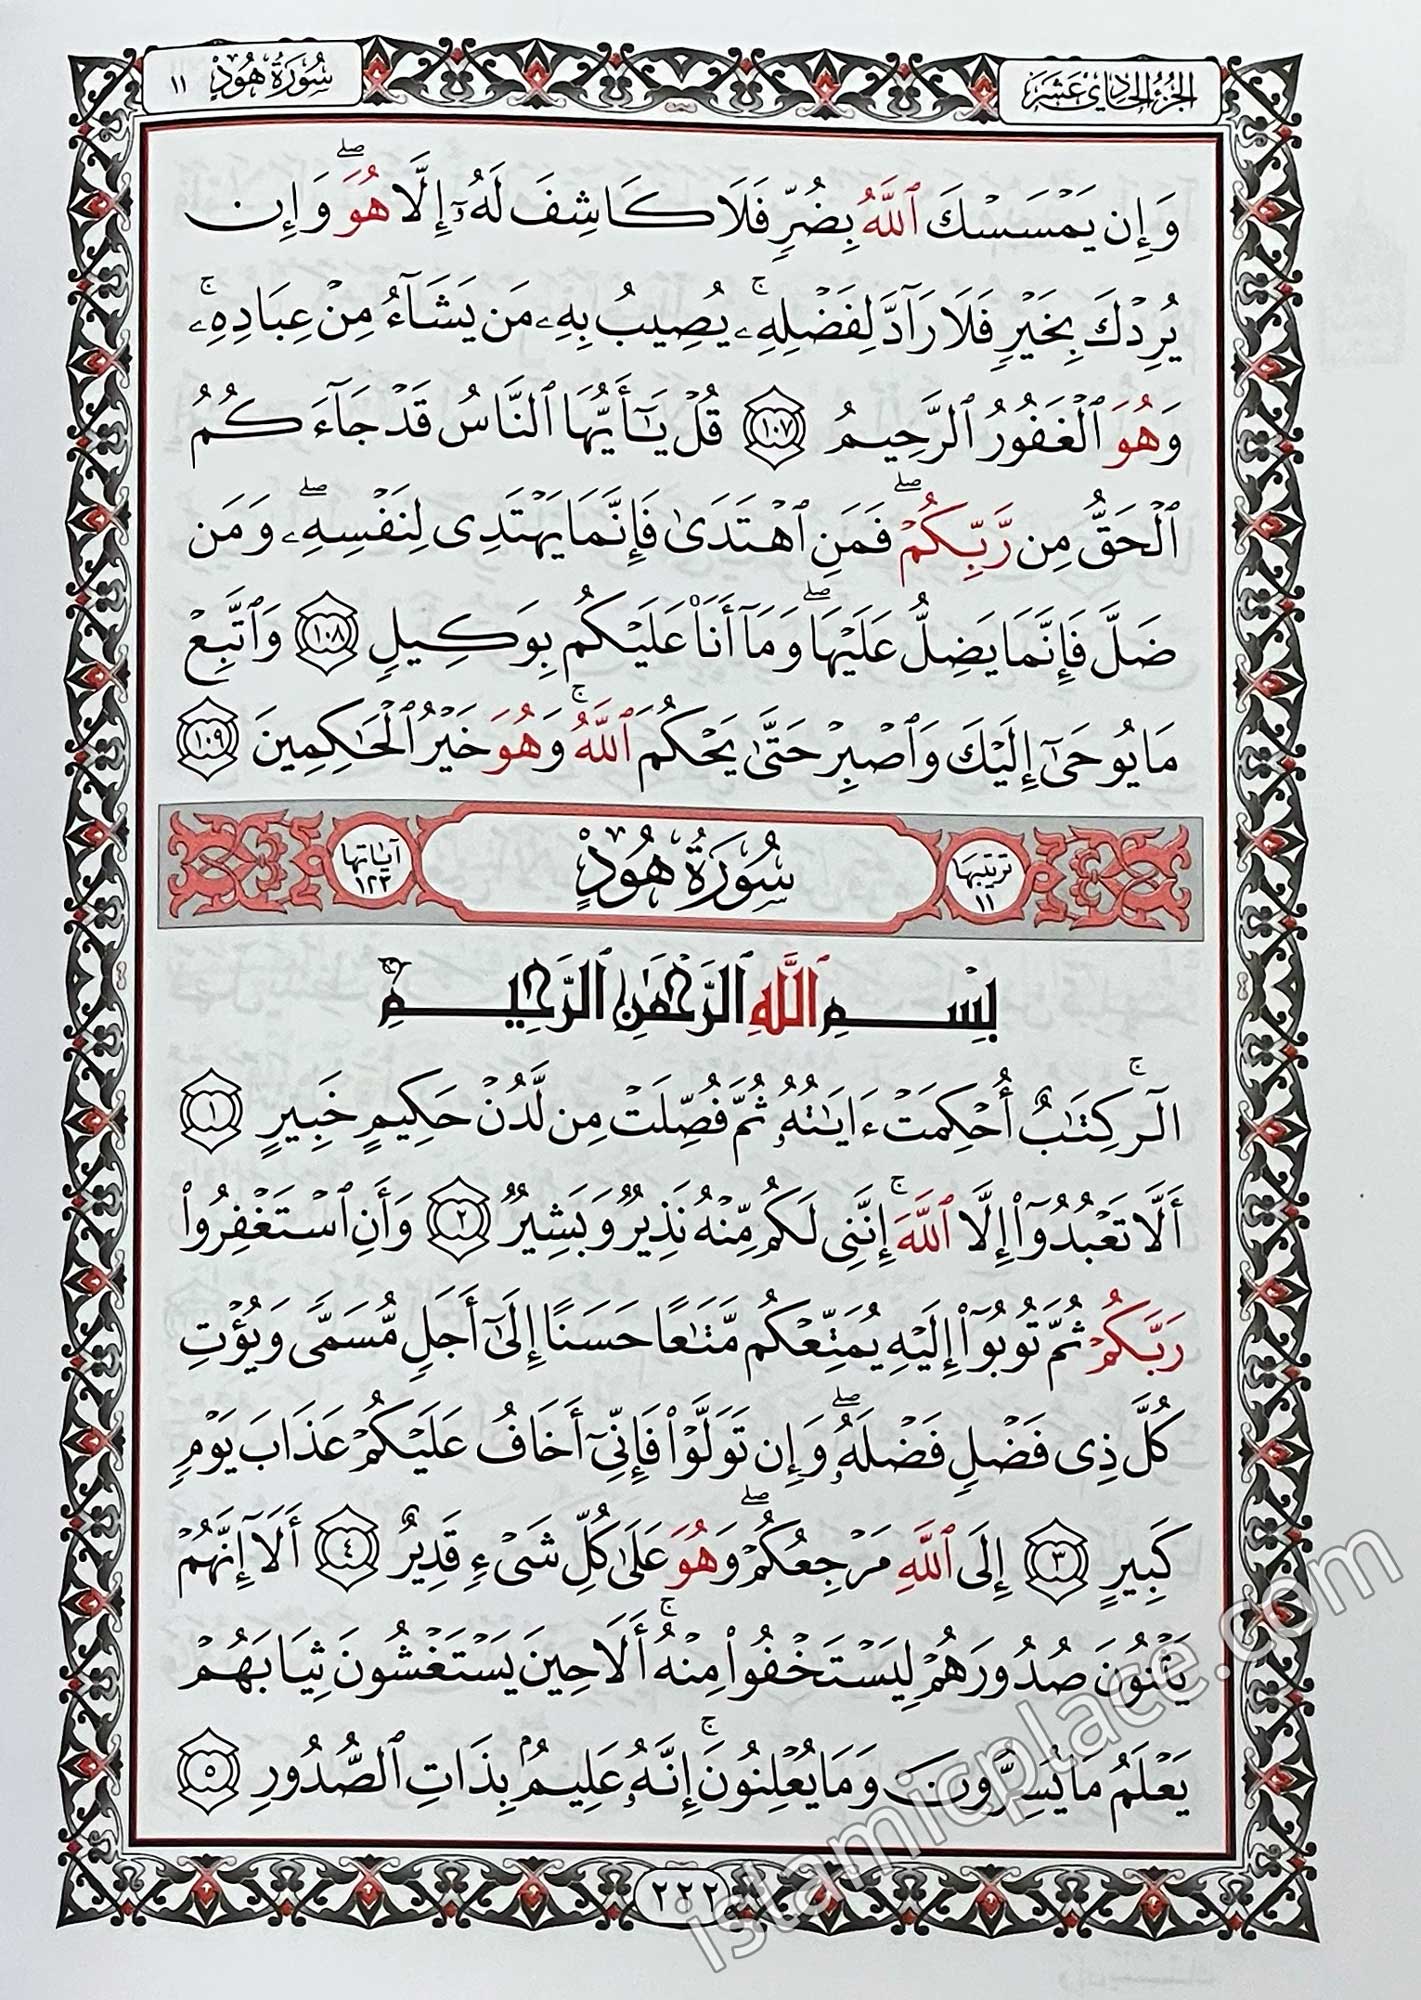 الجزء الحادي عشر
سُورَةُ هُودٍ ١١
وَإِن يَمْسَسْكَ ٱللَّهُ بِضُرٍّ فَلَا كَاشِفَ لَهُۥٓ إِلَّا هُوَۖ وَإِن
يُرِدْكَ بِخَيْرٍ فَلَا رَآدَّ لِفَضْلِهِۦۚ يُصِيبُ بِهِۦ مَن يَشَآءُ مِنْ عِبَادِهِۦۚ
وَهُوَ ٱلْغَفُورُ ٱلرَّحِيمُ ١٠٧ قُلْ يَـٰٓأَيُّهَا ٱلنَّاسُ قَدْ جَآءَكُمُ
ٱلْحَقُّ مِن رَّبِّكُمْۖ فَمَنِ ٱهْتَدَىٰ فَإِنَّمَا يَهْتَدِى لِنَفْسِهِۦۖ وَمَن
ضَلَّ فَإِنَّمَا يَضِلُّ عَلَيْهَاۖ وَمَآ أَنَا۠ عَلَيْكُم بِوَكِيلٍ ١٠٨ وَٱتَّبِعْ
مَا يُوحَىٰٓ إِلَيْكَ وَٱصْبِرْ حَتَّىٰ يَحْكُمَ ٱللَّهُۚ وَهُوَ خَيْرُ ٱلْحَـٰكِمِينَ ١٠٩
ترتيبها ١١ سُورَةُ هُودٍ آياتها ١٢٣
بِسْمِ ٱللَّهِ ٱلرَّحْمَـٰنِ ٱلرَّحِيمِ
الٓرۚ كِتَـٰبٌ أُحْكِمَتْ ءَايَـٰتُهُۥ ثُمَّ فُصِّلَتْ مِن لَّدُنْ حَكِيمٍ خَبِيرٍ ١
أَلَّا تَعْبُدُوٓا۟ إِلَّا ٱللَّهَۚ إِنَّنِى لَكُم مِّنْهُ نَذِيرٌ وَبَشِيرٌ ٢ وَأَنِ ٱسْتَغْفِرُوا۟
رَبَّكُمْ ثُمَّ تُوبُوٓا۟ إِلَيْهِ يُمَتِّعْكُم مَّتَـٰعًا حَسَنًا إِلَىٰٓ أَجَلٍ مُّسَمًّى وَيُؤْتِ
كُلَّ ذِى فَضْلٍ فَضْلَهُۥۖ وَإِن تَوَلَّوْا۟ فَإِنِّىٓ أَخَافُ عَلَيْكُمْ عَذَابَ يَوْمٍ
كَبِيرٍ ٣ إِلَى ٱللَّهِ مَرْجِعُكُمْۖ وَهُوَ عَلَىٰ كُلِّ شَىْءٍ قَدِيرٌ ٤ أَلَآ إِنَّهُمْ
يَثْنُونَ صُدُورَهُمْ لِيَسْتَخْفُوا۟ مِنْهُۚ أَلَا حِينَ يَسْتَغْشُونَ ثِيَابَهُمْ
يَعْلَمُ مَا يُسِرُّونَ وَمَا يُعْلِنُونَۚ إِنَّهُۥ عَلِيمٌۢ بِذَاتِ ٱلصُّدُورِ ٥
٢٢٢
islamicplace.com